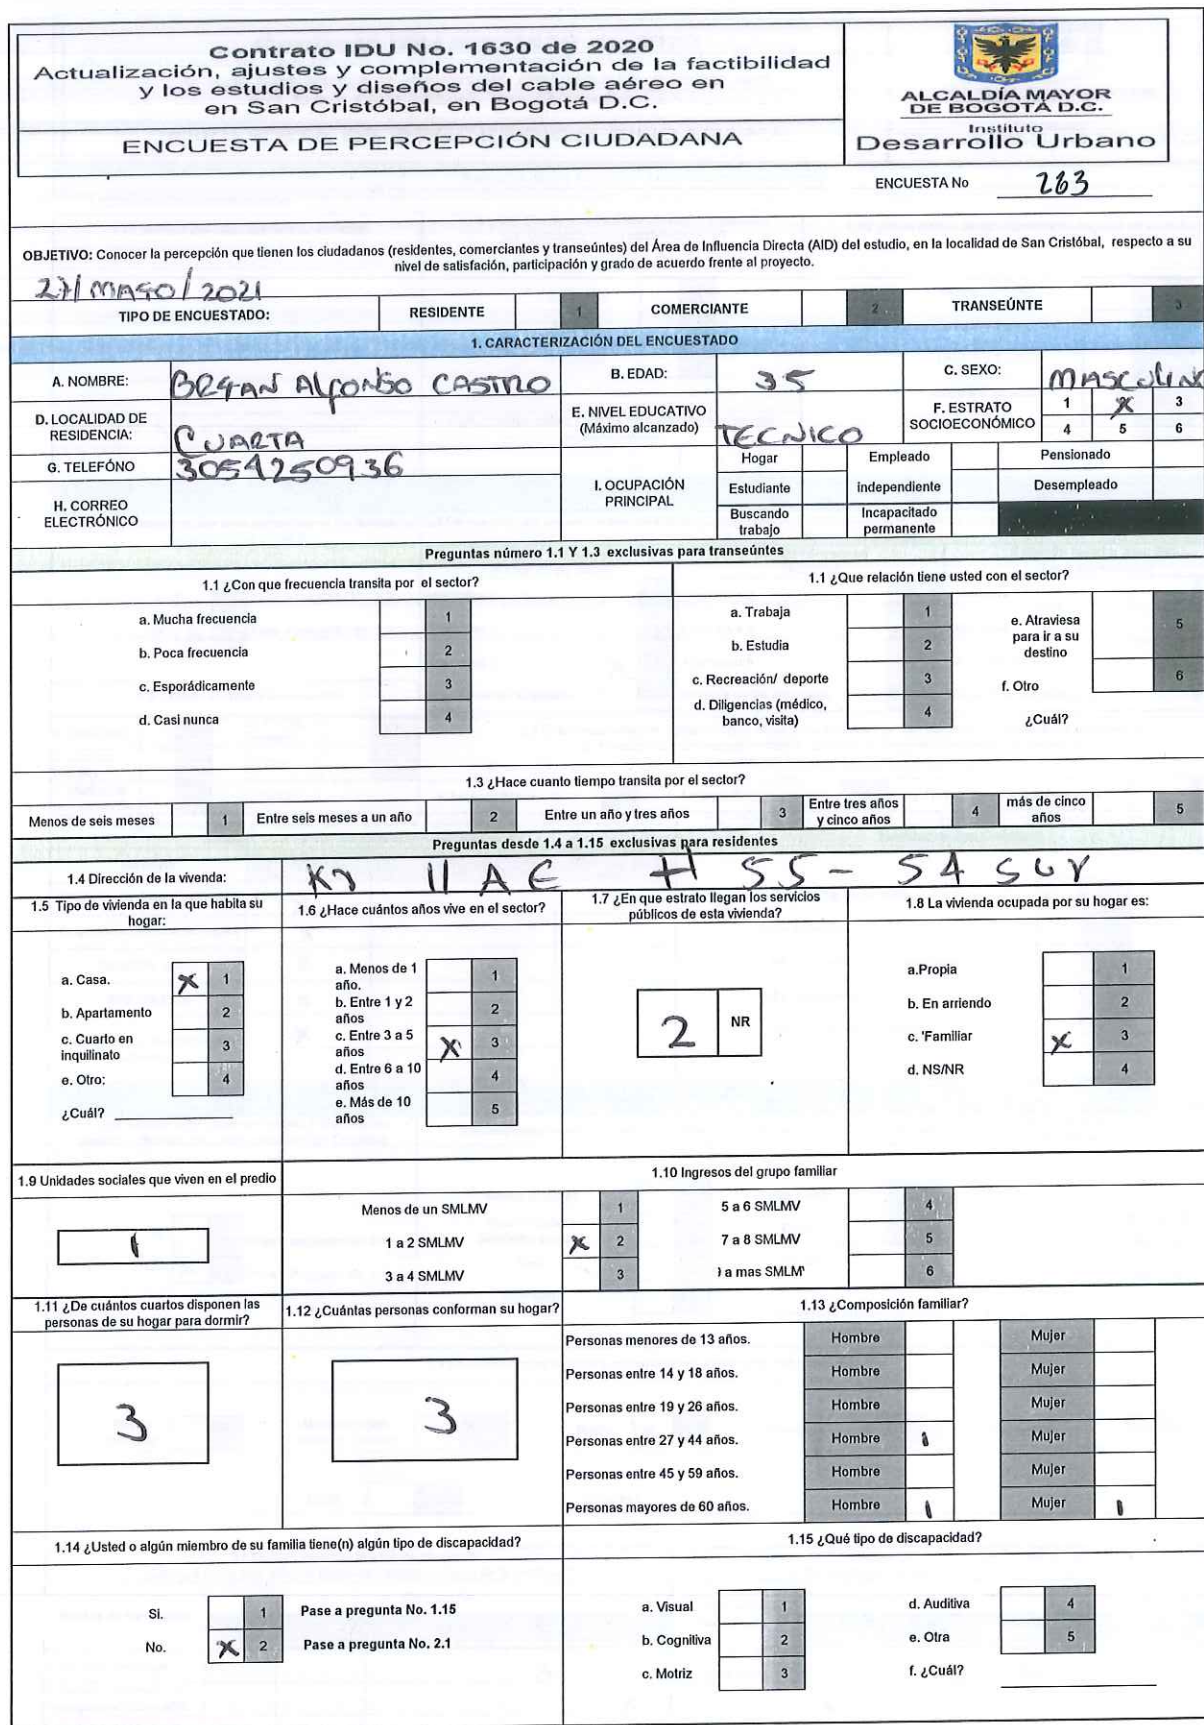 Contrato IDU No. 1630 de 2020
Actualización, ajustes y complementación de la factibilidad
y los estudios y diseños del cable aéreo en
en San Cristóbal, en Bogotá D.C.
ENCUESTA DE PERCEPCIÓN CIUDADANA
ALCALDÍA MAYOR
DE BOGOTÁ D.C.
Instituto
Desarrollo Urbano
ENCUESTA No 263
OBJETIVO: Conocer la percepción que tienen los ciudadanos (residentes, comerciantes y transeúntes) del Área de Influencia Directa (AID) del estudio, en la localidad de San Cristóbal, respecto a su
nivel de satisfacción, participación y grado de acuerdo frente al proyecto.
27/MAYO/2021
TIPO DE ENCUESTADO: RESIDENTE 1 COMERCIANTE 2 TRANSEÚNTE 3
1. CARACTERIZACIÓN DEL ENCUESTADO
A. NOMBRE: BRYAN ALFONSO CASTRO B. EDAD: 35 C. SEXO: MASCULINO
D. LOCALIDAD DE RESIDENCIA: CUARTA E. NIVEL EDUCATIVO (Máximo alcanzado) TECNICO F. ESTRATO SOCIOECONÓMICO 1 X 3
4 5 6
G. TELEFÓNO 3054250936
H. CORREO ELECTRÓNICO
I. OCUPACIÓN PRINCIPAL
Hogar Empleado Pensionado
Estudiante independiente Desempleado
Buscando trabajo Incapacitado permanente
Preguntas número 1.1 Y 1.3 exclusivas para transeúntes
1.1 ¿Con que frecuencia transita por el sector?
a. Mucha frecuencia 1
b. Poca frecuencia 2
c. Esporádicamente 3
d. Casi nunca 4
1.1 ¿Que relación tiene usted con el sector?
a. Trabaja 1
b. Estudia 2
c. Recreación/ deporte 3
d. Diligencias (médico, banco, visita) 4
e. Atraviesa para ir a su destino 5
f. Otro 6
¿Cuál?
1.3 ¿Hace cuanto tiempo transita por el sector?
Menos de seis meses 1 Entre seis meses a un año 2 Entre un año y tres años 3 Entre tres años y cinco años 4 más de cinco años 5
Preguntas desde 1.4 a 1.15 exclusivas para residentes
1.4 Dirección de la vivenda: Kr 11 A E # 55 - 54 SUR
1.5 Tipo de vivienda en la que habita su hogar:
a. Casa. X 1
b. Apartamento 2
c. Cuarto en inquilinato 3
e. Otro: 4
¿Cuál?
1.6 ¿Hace cuántos años vive en el sector?
a. Menos de 1 año. 1
b. Entre 1 y 2 años 2
c. Entre 3 a 5 años X 3
d. Entre 6 a 10 años 4
e. Más de 10 años 5
1.7 ¿En que estrato llegan los servicios públicos de esta vivienda?
2 NR
1.8 La vivienda ocupada por su hogar es:
a.Propia 1
b. En arriendo 2
c. 'Familiar X 3
d. NS/NR 4
1.9 Unidades sociales que viven en el predio
1
1.10 Ingresos del grupo familiar
Menos de un SMLMV 1 5 a 6 SMLMV 4
1 a 2 SMLMV X 2 7 a 8 SMLMV 5
3 a 4 SMLMV 3 a mas SMLM 6
1.11 ¿De cuántos cuartos disponen las personas de su hogar para dormir?
3
1.12 ¿Cuántas personas conforman su hogar?
3
1.13 ¿Composición familiar?
Personas menores de 13 años. Hombre Mujer
Personas entre 14 y 18 años. Hombre Mujer
Personas entre 19 y 26 años. Hombre Mujer
Personas entre 27 y 44 años. Hombre 1 Mujer
Personas entre 45 y 59 años. Hombre Mujer
Personas mayores de 60 años. Hombre 1 Mujer 1
1.14 ¿Usted o algún miembro de su familia tiene(n) algún tipo de discapacidad?
Si. 1 Pase a pregunta No. 1.15
No. X 2 Pase a pregunta No. 2.1
1.15 ¿Qué tipo de discapacidad?
a. Visual 1 d. Auditiva 4
b. Cognitiva 2 e. Otra 5
c. Motriz 3 f. ¿Cuál?